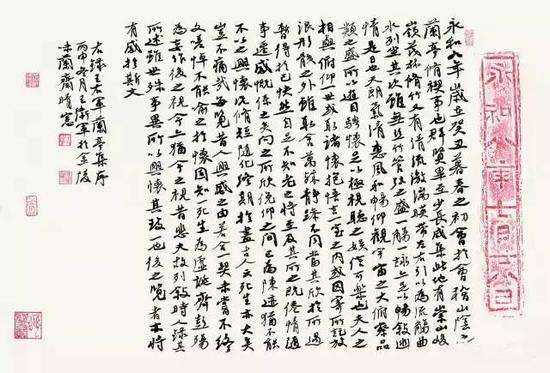 永和九年歲在癸丑暮春之初會于會稽山陰之
蘭亭脩禊事也群賢畢至少長咸集此地有崇山峻
嶺茂林脩竹又有清流激湍暎帶左右引以為流觴曲
水列坐其次雖無絲竹管弦之盛一觴一詠亦足以暢敘幽
情是日也天朗氣清惠風和暢仰觀宇宙之大俯察品
類之盛所以遊目騁懷足以極視聽之娛信可樂也夫人之
相與俯仰一世或取諸懷抱悟言一室之內或因寄所託放
浪形骸之外雖取舍萬殊靜躁不同當其欣於所遇
暫得於己快然自足不知老之將至及其所之既倦情隨
事遷感慨係之矣向之所欣俛仰之間已為陳迹猶不能
不以之興懷況脩短隨化終期於盡古人云死生亦大矣
豈不痛哉每覽昔人興感之由若合一契未嘗不臨
文嗟悼不能喻之於懷固知一死生為虛誕齊彭殤
為妄作後之視今亦猶今之視昔悲夫故列敘時人錄其
所述雖世殊事異所以興懷其致一也後之覽者亦將
有感於斯文
右錄王右軍蘭亭集序
丙申冬月王衛軍於金陵
味蘭齋晴窗